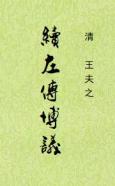 清 王夫之
續左傳博議